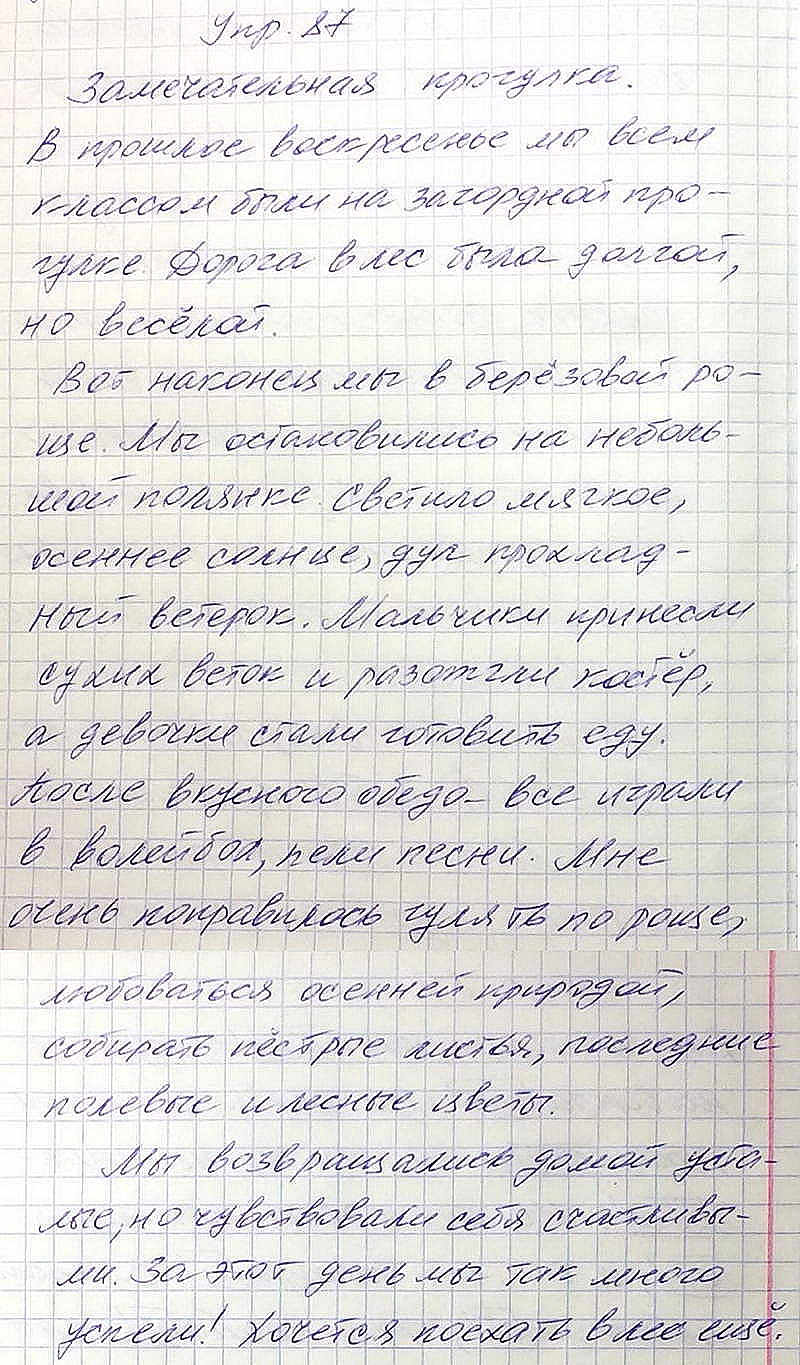 Упр. 87
Замечательная прогулка.
В прошлое воскресенье мы всем
классом были на загордной про-
гулке. Дорога в лес была долгой,
но весёлой.
Вот наконец мы в берёзовой ро-
ще. Мы остановились на неболь-
шой полянке. Светило мягкое,
осеннее солнце, дул прохлад-
ный ветерок. Мальчики принесли
сухих веток и разожгли костёр,
а девочки стали готовить еду.
После вкусного обеда все играли
в волейбол, пели песни. Мне
очень понравилось гулять по роще,
любоваться осенней природой,
собирать пёстрые листья, последние
полевые и лесные цветы.
Мы возвращались домой уста-
лые, но чувствовали себя счастливы-
ми. За этот день мы так много
успели! Хочется поехать в лес ещё.